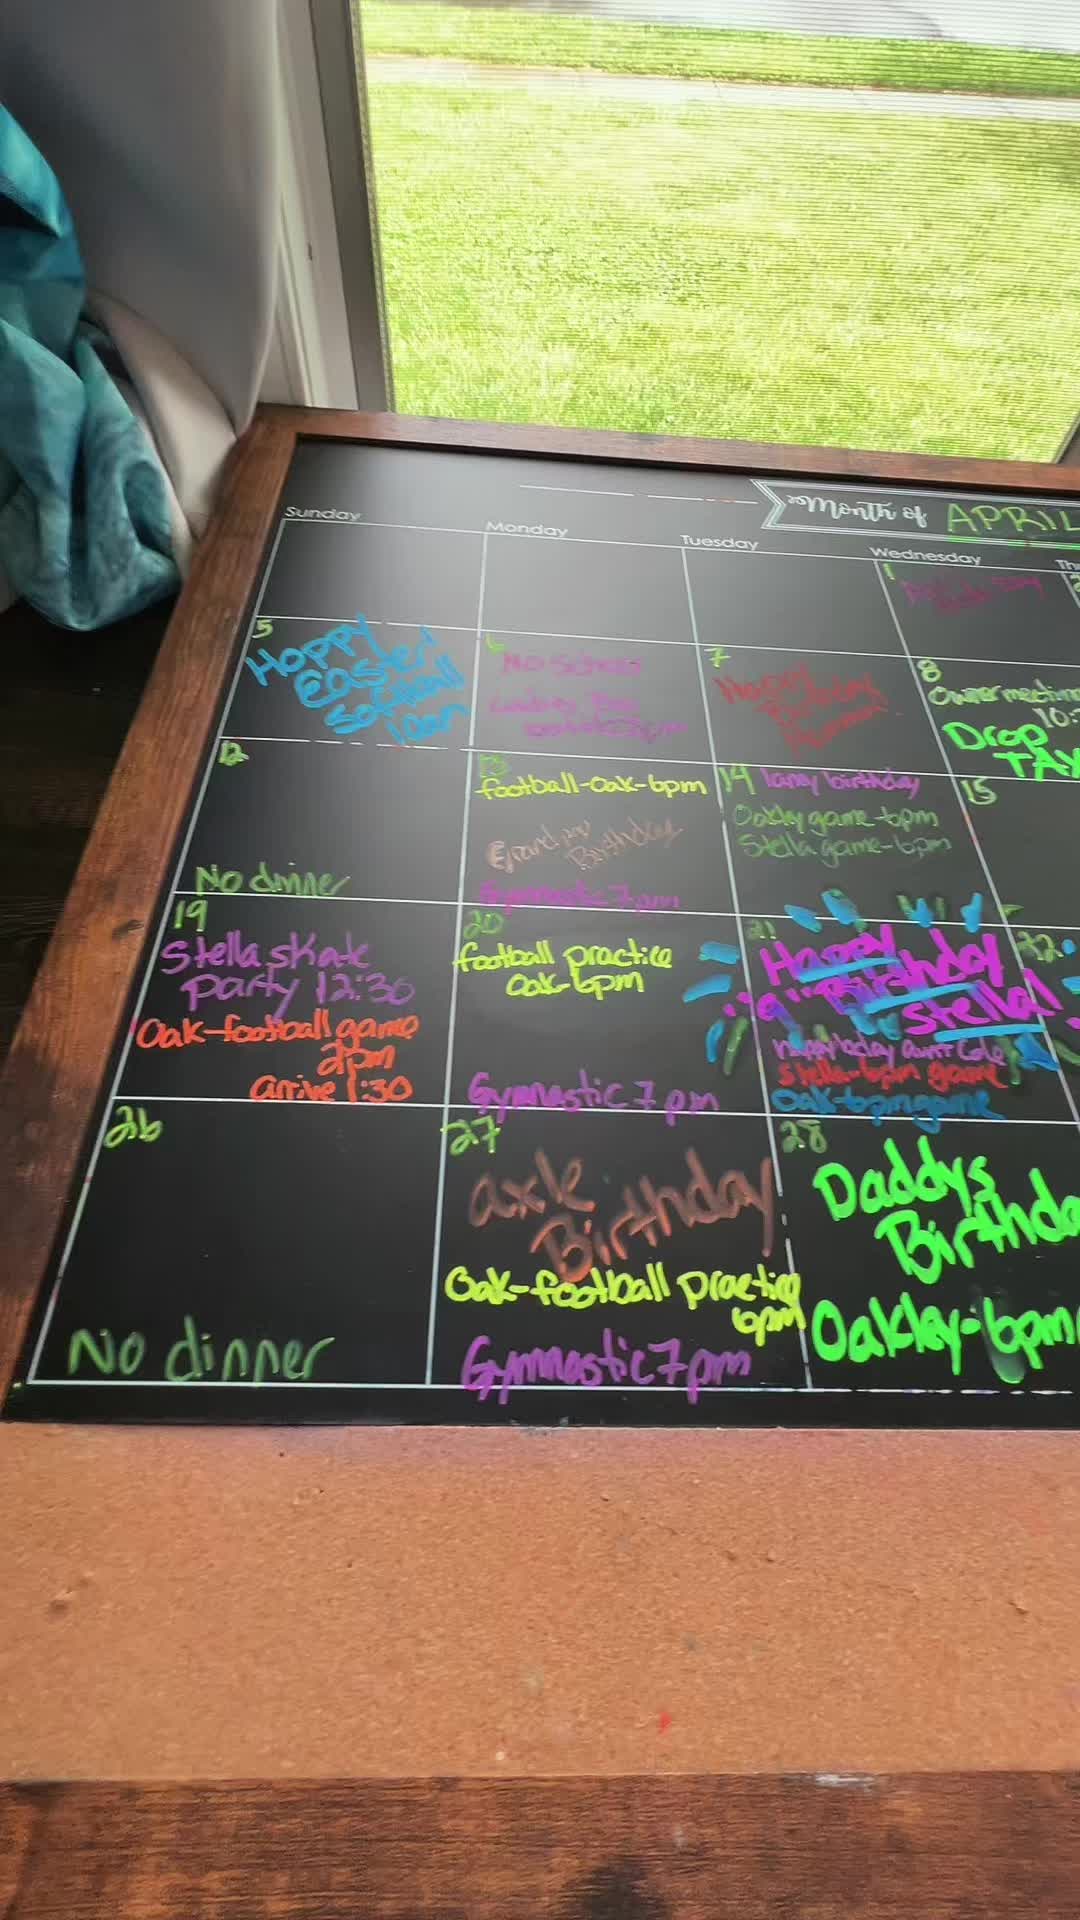 Month of APRIL
Sunday
Monday
Tuesday
Wednesday
1
5
Happy
Easter!
6
No School
7
Happy
8
Owner meeting
10:
Drop
TAX
12
No dinner
13
football-Oak-6pm
Birthday
Gymnastic 7pm
14 laney birthday
Oakley game-6pm
Stella game-6pm
15
19
Stella skate
party 12:30
Oak-football game
2pm
arrive 1:30
20
football practice
Oak-6pm
Gymnastic 7pm
21
Happy
"9" Birthday
Stella!
happy bday aunt Cole
Stella-6pm game
Oak-6pm game
22
26
No dinner
27
axle
Birthday
Oak-football practice
6pm
Gymnastic 7pm
28
Daddys
Birthda
Oakley-6pm